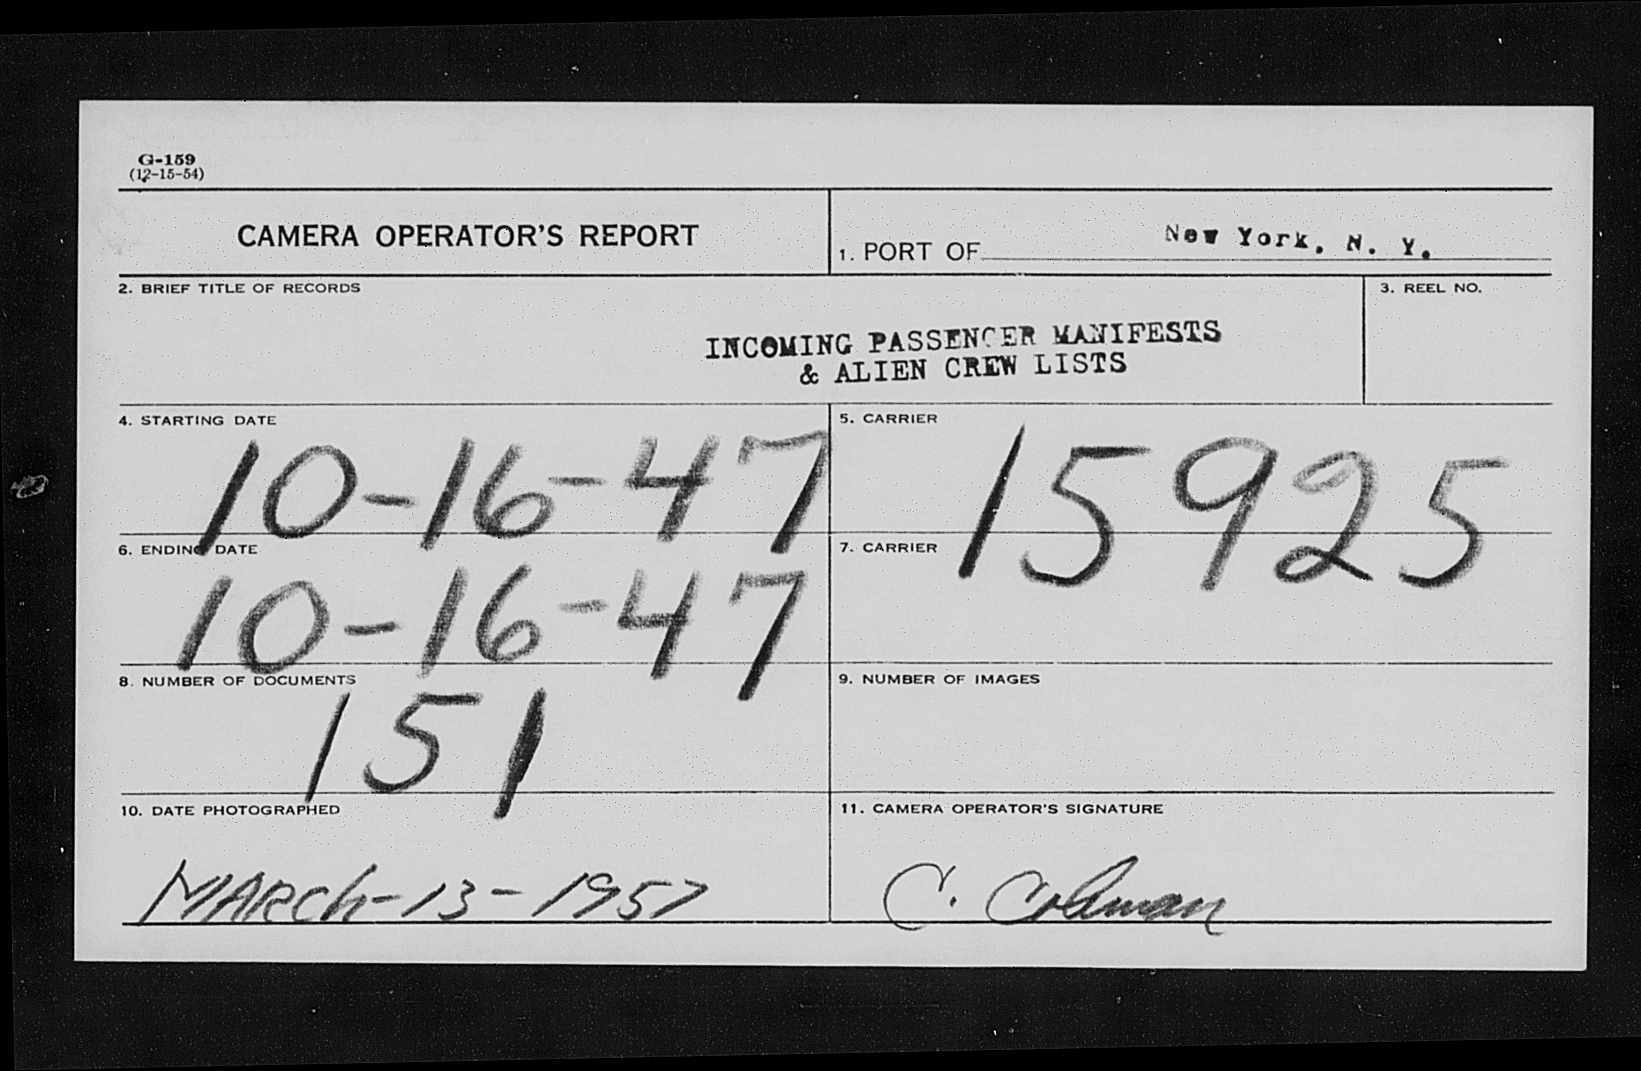 G-159
(12-15-54)
CAMERA OPERATOR'S REPORT
1. PORT OF New York, N. Y.
2. BRIEF TITLE OF RECORDS
3. REEL NO.
INCOMING PASSENGER MANIFESTS
& ALIEN CREW LISTS
4. STARTING DATE
10-16-47
5. CARRIER
15925
6. ENDING DATE
10-16-47
7. CARRIER
8. NUMBER OF DOCUMENTS
151
9. NUMBER OF IMAGES
10. DATE PHOTOGRAPHED
MARCh-13-1957
11. CAMERA OPERATOR'S SIGNATURE
C. Colman